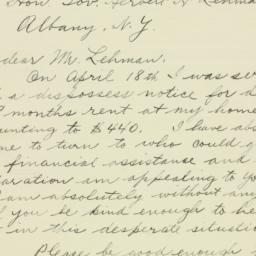 Hon. Gov. Herbert H. Lehman
Albany, N.Y.
dear Mr. Lehman.
On April 18th I was ser
a dispossess notice for
months rent at my home
unting to $440. I have abs
me to turn to who could g
financial assistance and
ration am appealing to yo
am absolutely without any
you be kind enough to he
in this desperate situatio
Please be good enough